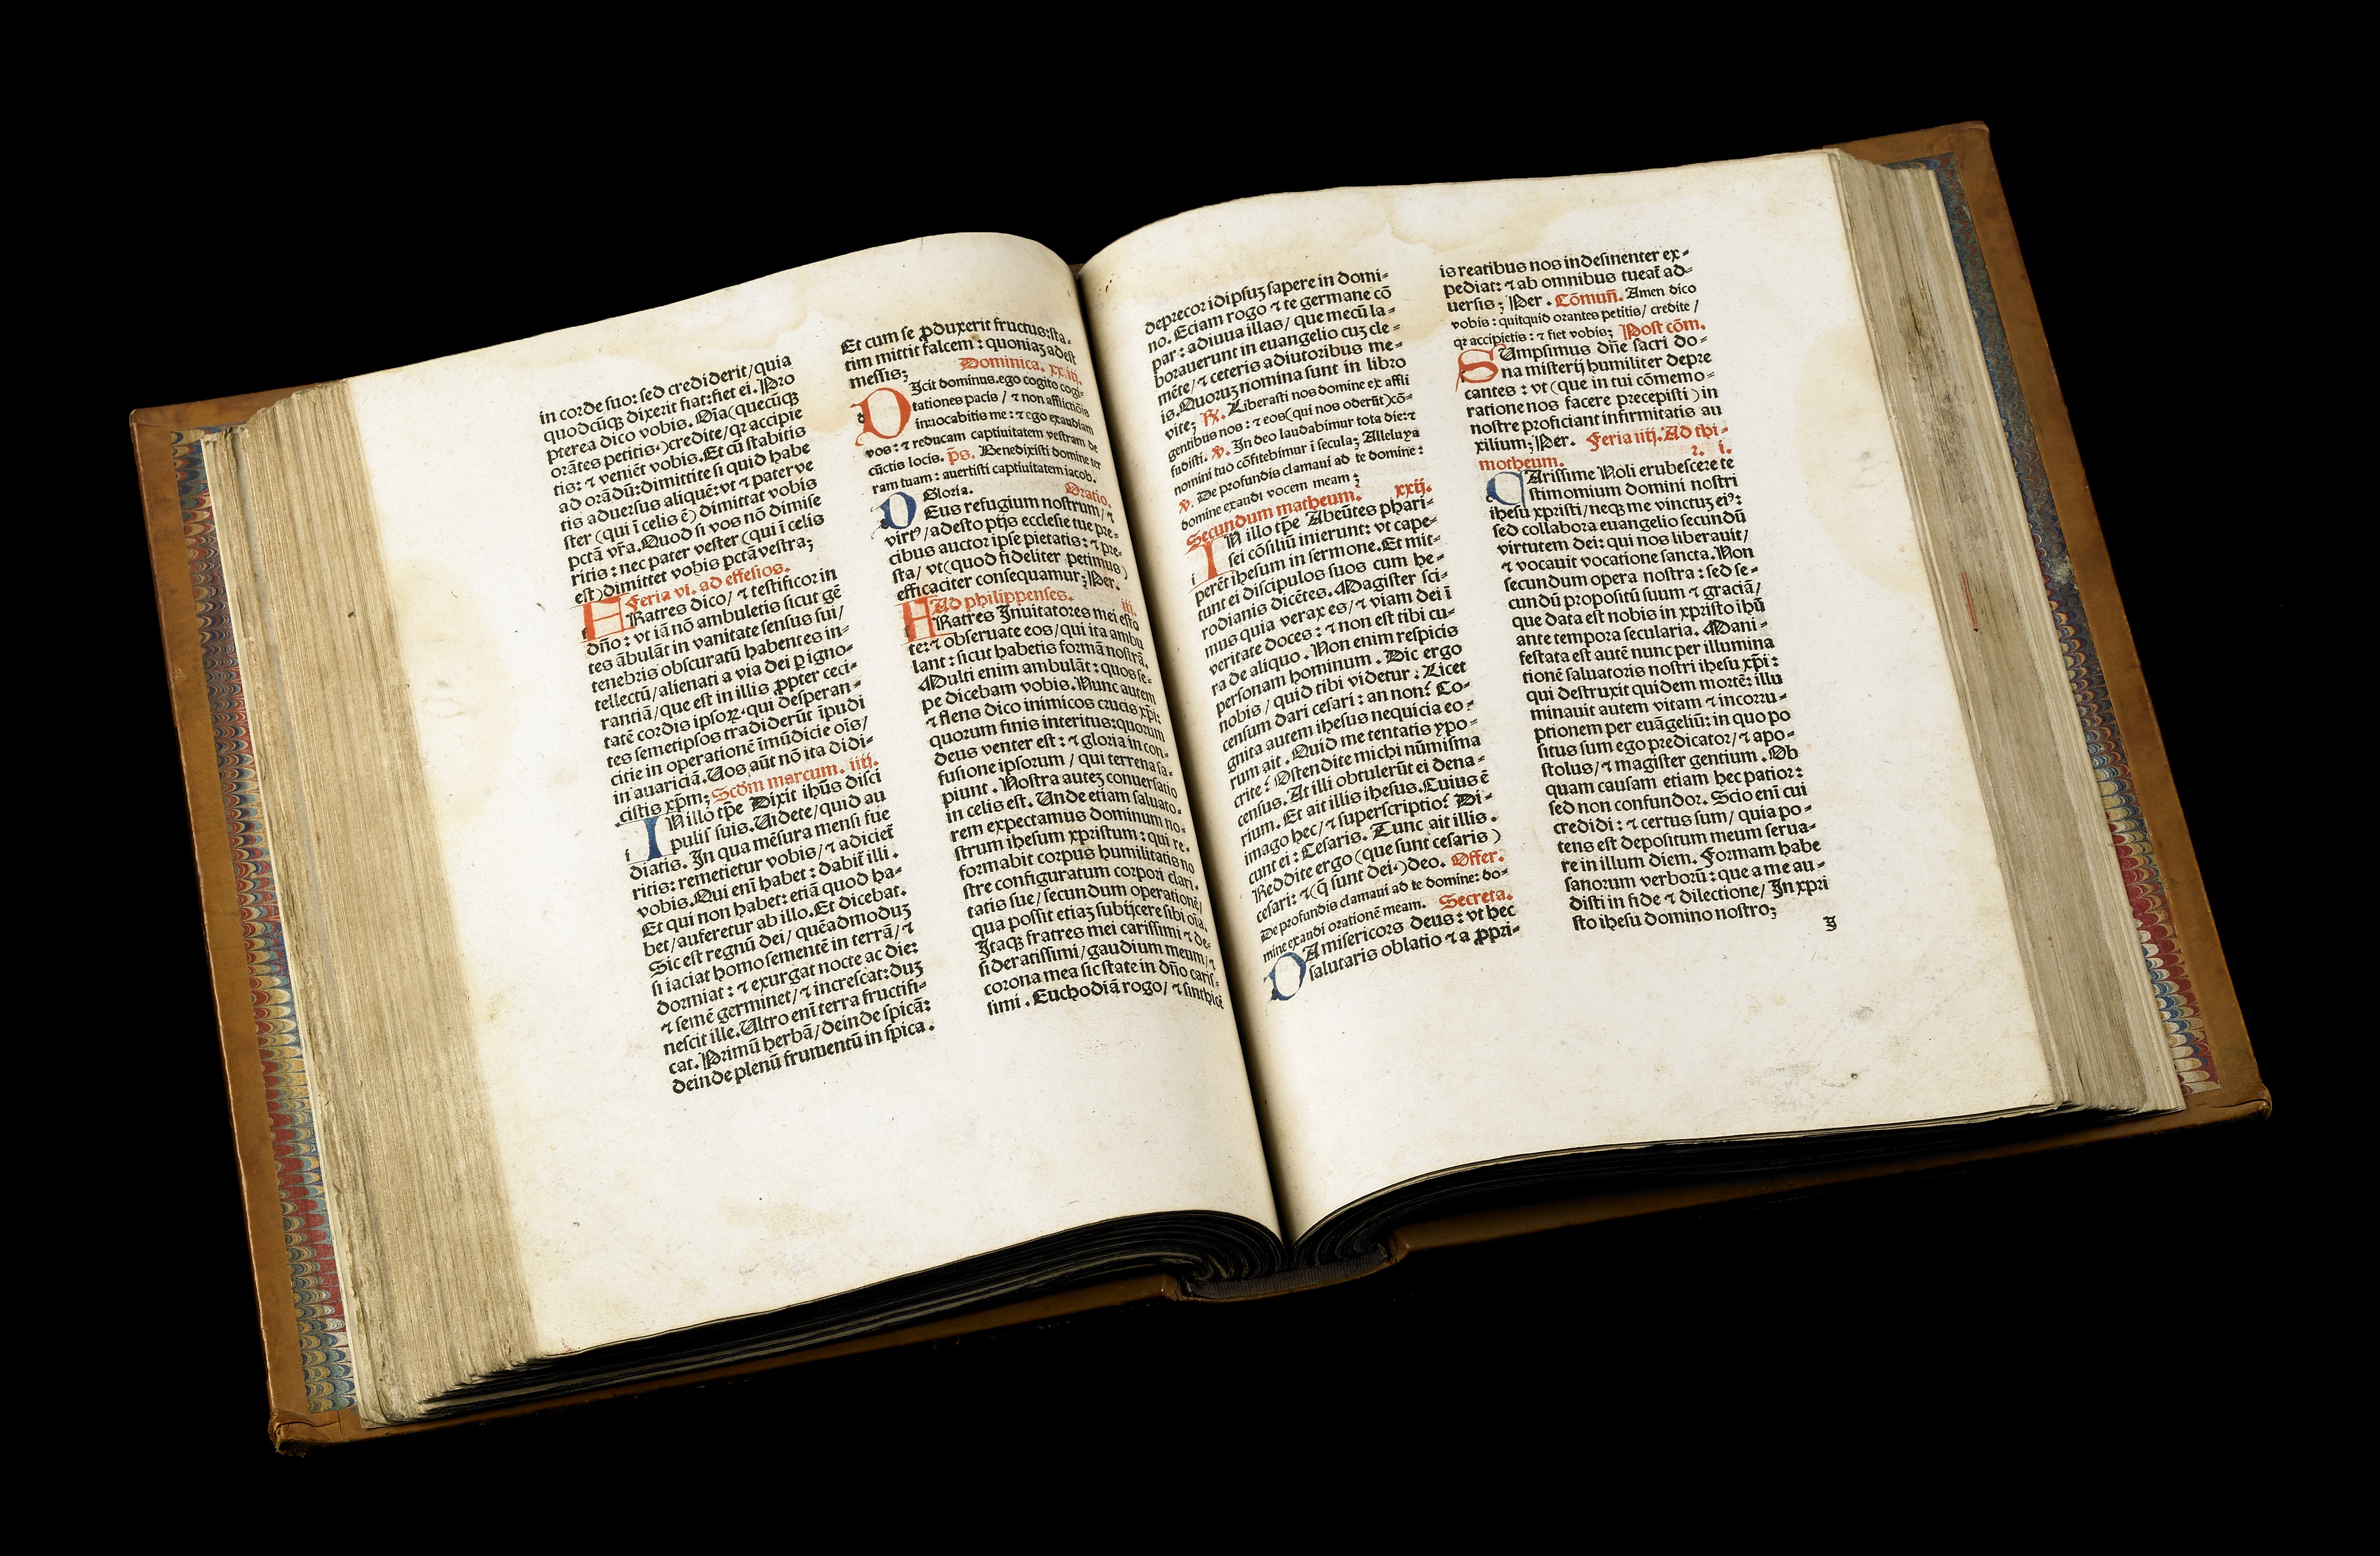 in corde suo: sed crediderit/quia
quodcūqꝫ dixerit fiat: fiet ei. Pro
pterea dico vobis. Oīa(quecūqꝫ
orātes petitis.)credite/qꝛ accipie
tis: ⁊ veniēt vobis. Et cū stabitis
ad orādū: dimittite si quid habe
tis aduersus aliquē: vt ⁊ pater ve
ster (qui ī celis ē) dimittat vobis
pctā vr̄a. Quod si vos nō dimise
ritis: nec pater vester (qui ī celis
est) dimittet vobis pctā vestra;
Feria vi. ad effesios.
FRatres dico/⁊ testificor in
dn̄o: vt iā nō ambuletis sicut gē
tes ābulāt in vanitate sensus sui/
tenebris obscuratū habentes in-
tellectū/alienati a via dei ꝑ igno-
rantiā/que est in illis ꝓpter ceci-
tatē cordis ipsoꝝ. qui desperan-
tes semetipsos tradiderūt īpudi
citie in operationē īmūdicie oīs/
in auariciā. Uos aūt nō ita didi-
cistis xp̄m; Scdm marcum. iiij.
IN illo tp̄e Dixit ihūs disci
pulis suis. Uidete/quid au
diatis. In qua mēsura mensi fue
ritis: remetietur vobis/⁊ adiciet̄
vobis. Qui enī habet: dabit̄ illi.
Et qui non habet: etiā quod ha-
bet/auferetur ab illo. Et dicebat.
Sic est regnū dei/quēadmoduꝫ
si iaciat homo sementē in terrā/⁊
dormiat: ⁊ exurgat nocte ac die:
⁊ semē germinet/⁊ increscat: duꝫ
nescit ille. Ultro enī terra fructifi-
cat. Primū herbā/deinde spicā:
deinde plenū frumentū in spica.
Et cum se ꝓduxerit fructus: sta-
tim mittit falcem: quoniaꝫ adest
messis; Dominica. xxiij.
DIcit dominus. ego cogito cogi-
tationes pacis/⁊ non afflictiōis
inuocabitis me: ⁊ ego exaudiam
vos: ⁊ reducam captiuitatem vestram de
cūctis locis. p̄s. Benedixisti domine ter
ram tuam: auertisti captiuitatem iacob.
Gloria. Oratio.
DEus refugium nostrum/⁊
virtꝰ/adesto pijs ecclesie tue pre-
cibus auctor ipse pietatis: ⁊ pre-
sta/vt(quod fideliter petimus)
efficaciter consequamur; Per.
Ad philippenses. iij.
FRatres Inuitatores mei esto
te: ⁊ obseruate eos/qui ita ambu
lant: sicut habetis formā nostrā.
Multi enim ambulāt: quos se-
pe dicebam vobis. Nunc autem
⁊ flens dico inimicos crucis xp̄i:
quorum finis interitus: quorum
deus venter est: ⁊ gloria in con-
fusione ipsorum/qui terrena sa-
piunt. Nostra auteꝫ conuersatio
in celis est. Unde etiam saluato-
rem expectamus dominum no-
strum ihesum xpristum: qui re-
formabit corpus humilitatis no
stre configuratum corpori clari-
tatis sue/secundum operationē/
qua possit etiaꝫ subijcere sibi oīa.
Itaqꝫ fratres mei carissimi ⁊ de-
sideratissimi/gaudium meum/⁊
corona mea sic state in dn̄o caris-
simi. Euchodiā rogo/⁊ sinthicē
deprecor idipsuꝫ sapere in domi-
no. Eciam rogo ⁊ te germane cō
par: adiuua illas/que mecū la-
borauerunt in euangelio cuꝫ cle-
mēte/⁊ ceteris adiutoribus me-
is. Quoruꝫ nomina sunt in libro
vite; ℟. Liberasti nos domine ex affli
gentibus nos: ⁊ eos(qui nos oderūt)cō-
fudisti. ℣. In deo laudabimur tota die: ⁊
nomini tuo cōfitebimur ī secula; Alleluya
℣. De profundis clamaui ad te domine:
domine exaudi vocem meam;
Secundum matheum. xxij.
IN illo tp̄e Abeūtes phari-
sei cōsiliū inierunt: vt cape-
perēt ihesum in sermone. Et mit-
tunt ei discipulos suos cum he-
rodianis dicētes. Magister sci-
mus quia verax es/⁊ viam dei ī
veritate doces: ⁊ non est tibi cu-
ra de aliquo. Non enim respicis
personam hominum. Dic ergo
nobis/quid tibi videtur: Licet
censum dari cesari: an non? Co-
gnita autem ihesus nequicia eo-
rum ait. Quid me tentatis ypo-
crite? Ostendite michi nūmisma
census. At illi obtulerūt ei dena-
rium. Et ait illis ihesus. Cuius ē
imago hec/⁊ superscriptio? Di-
cunt ei: Cesaris. Tunc ait illis.
Reddite ergo (que sunt cesaris)
cesari: ⁊(q̄ sunt dei.)deo. Offer.
De profundis clamaui ad te domine: do-
mine exaudi orationē meam. Secreta.
DA misericors deus: vt hec
salutaris oblatio ⁊ a ꝓpri-
is reatibus nos indesinenter ex-
pediat: ⁊ ab omnibus tueat̄ ad-
uersis; Per. Cōmuñ. Amen dico
vobis: quitquid orantes petitis/credite/
qꝛ accipietis: ⁊ fiet vobis; Post cōm.
SUmpsimus dn̄e sacri do-
na misterij humiliter depre
cantes: vt (que in tui cōmemo-
ratione nos facere precepisti) in
nostre proficiant infirmitatis au
xilium; Per. Feria iiij. Ad thi-
motheum. 2. i.
CArissime Noli erubescere te
stimonium domini nostri
ihesu xpristi/neqꝫ me vinctuꝫ eiꝰ:
sed collabora euangelio secundū
virtutem dei: qui nos liberauit/
⁊ vocauit vocatione sancta. Non
secundum opera nostra: sed se-
cundū propositū suum ⁊ graciā/
que data est nobis in xpristo ihū
ante tempora secularia. Mani-
festata est autē nunc per illumina
tionē saluatoris nostri ihesu xp̄i:
qui destruxit quidem mortē: illu
minauit autem vitam ⁊ incorru-
ptionem per euāgeliū: in quo po
situs sum ego predicator/⁊ apo-
stolus/⁊ magister gentium. Ob
quam causam etiam hec patior:
sed non confundor. Scio enī cui
credidi: ⁊ certus sum/quia po-
tens est depositum meum serua-
re in illum diem. Formam habe
sanorum verborū: que a me au-
disti in fide ⁊ dilectione/In xpri
sto ihesu domino nostro;